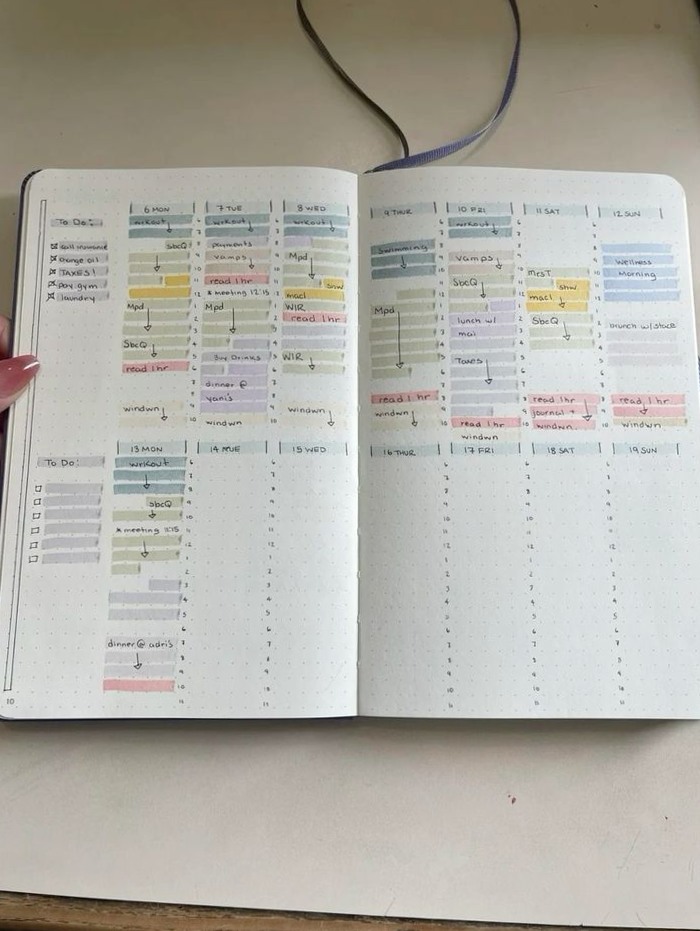 6 MON
7 TUE
8 WED
9 THUR
10 FRI
11 SAT
12 SUN
To Do:
call insurance
change oil
TAXES!
pay gym
laundry
workout
SbcQ
Mpd
SbcQ
read 1hr
windwn
workout
payments
vamps
read 1hr
* meeting 12:15
Mpd
buy Drinks
dinner @
yani's
windwn
workout
Mpd
shw
macl
WIR
read 1hr
WIR
windwn
swimming
Mpd
read 1 hr
windwn
workout
vamps
SbcQ
lunch w/
mai
Taxes
read 1hr
windwn
MrsT
shw
macl
SbcQ
read 1hr
journal +
windwn.
wellness
Morning
brunch w/stace
read 1hr
windwn
13 MON
14 TUE
15 WED
16 THUR
17 FRI
18 SAT
19 SUN
To Do:
workout
sbcQ
* meeting 11:15
dinner @ adri's
10